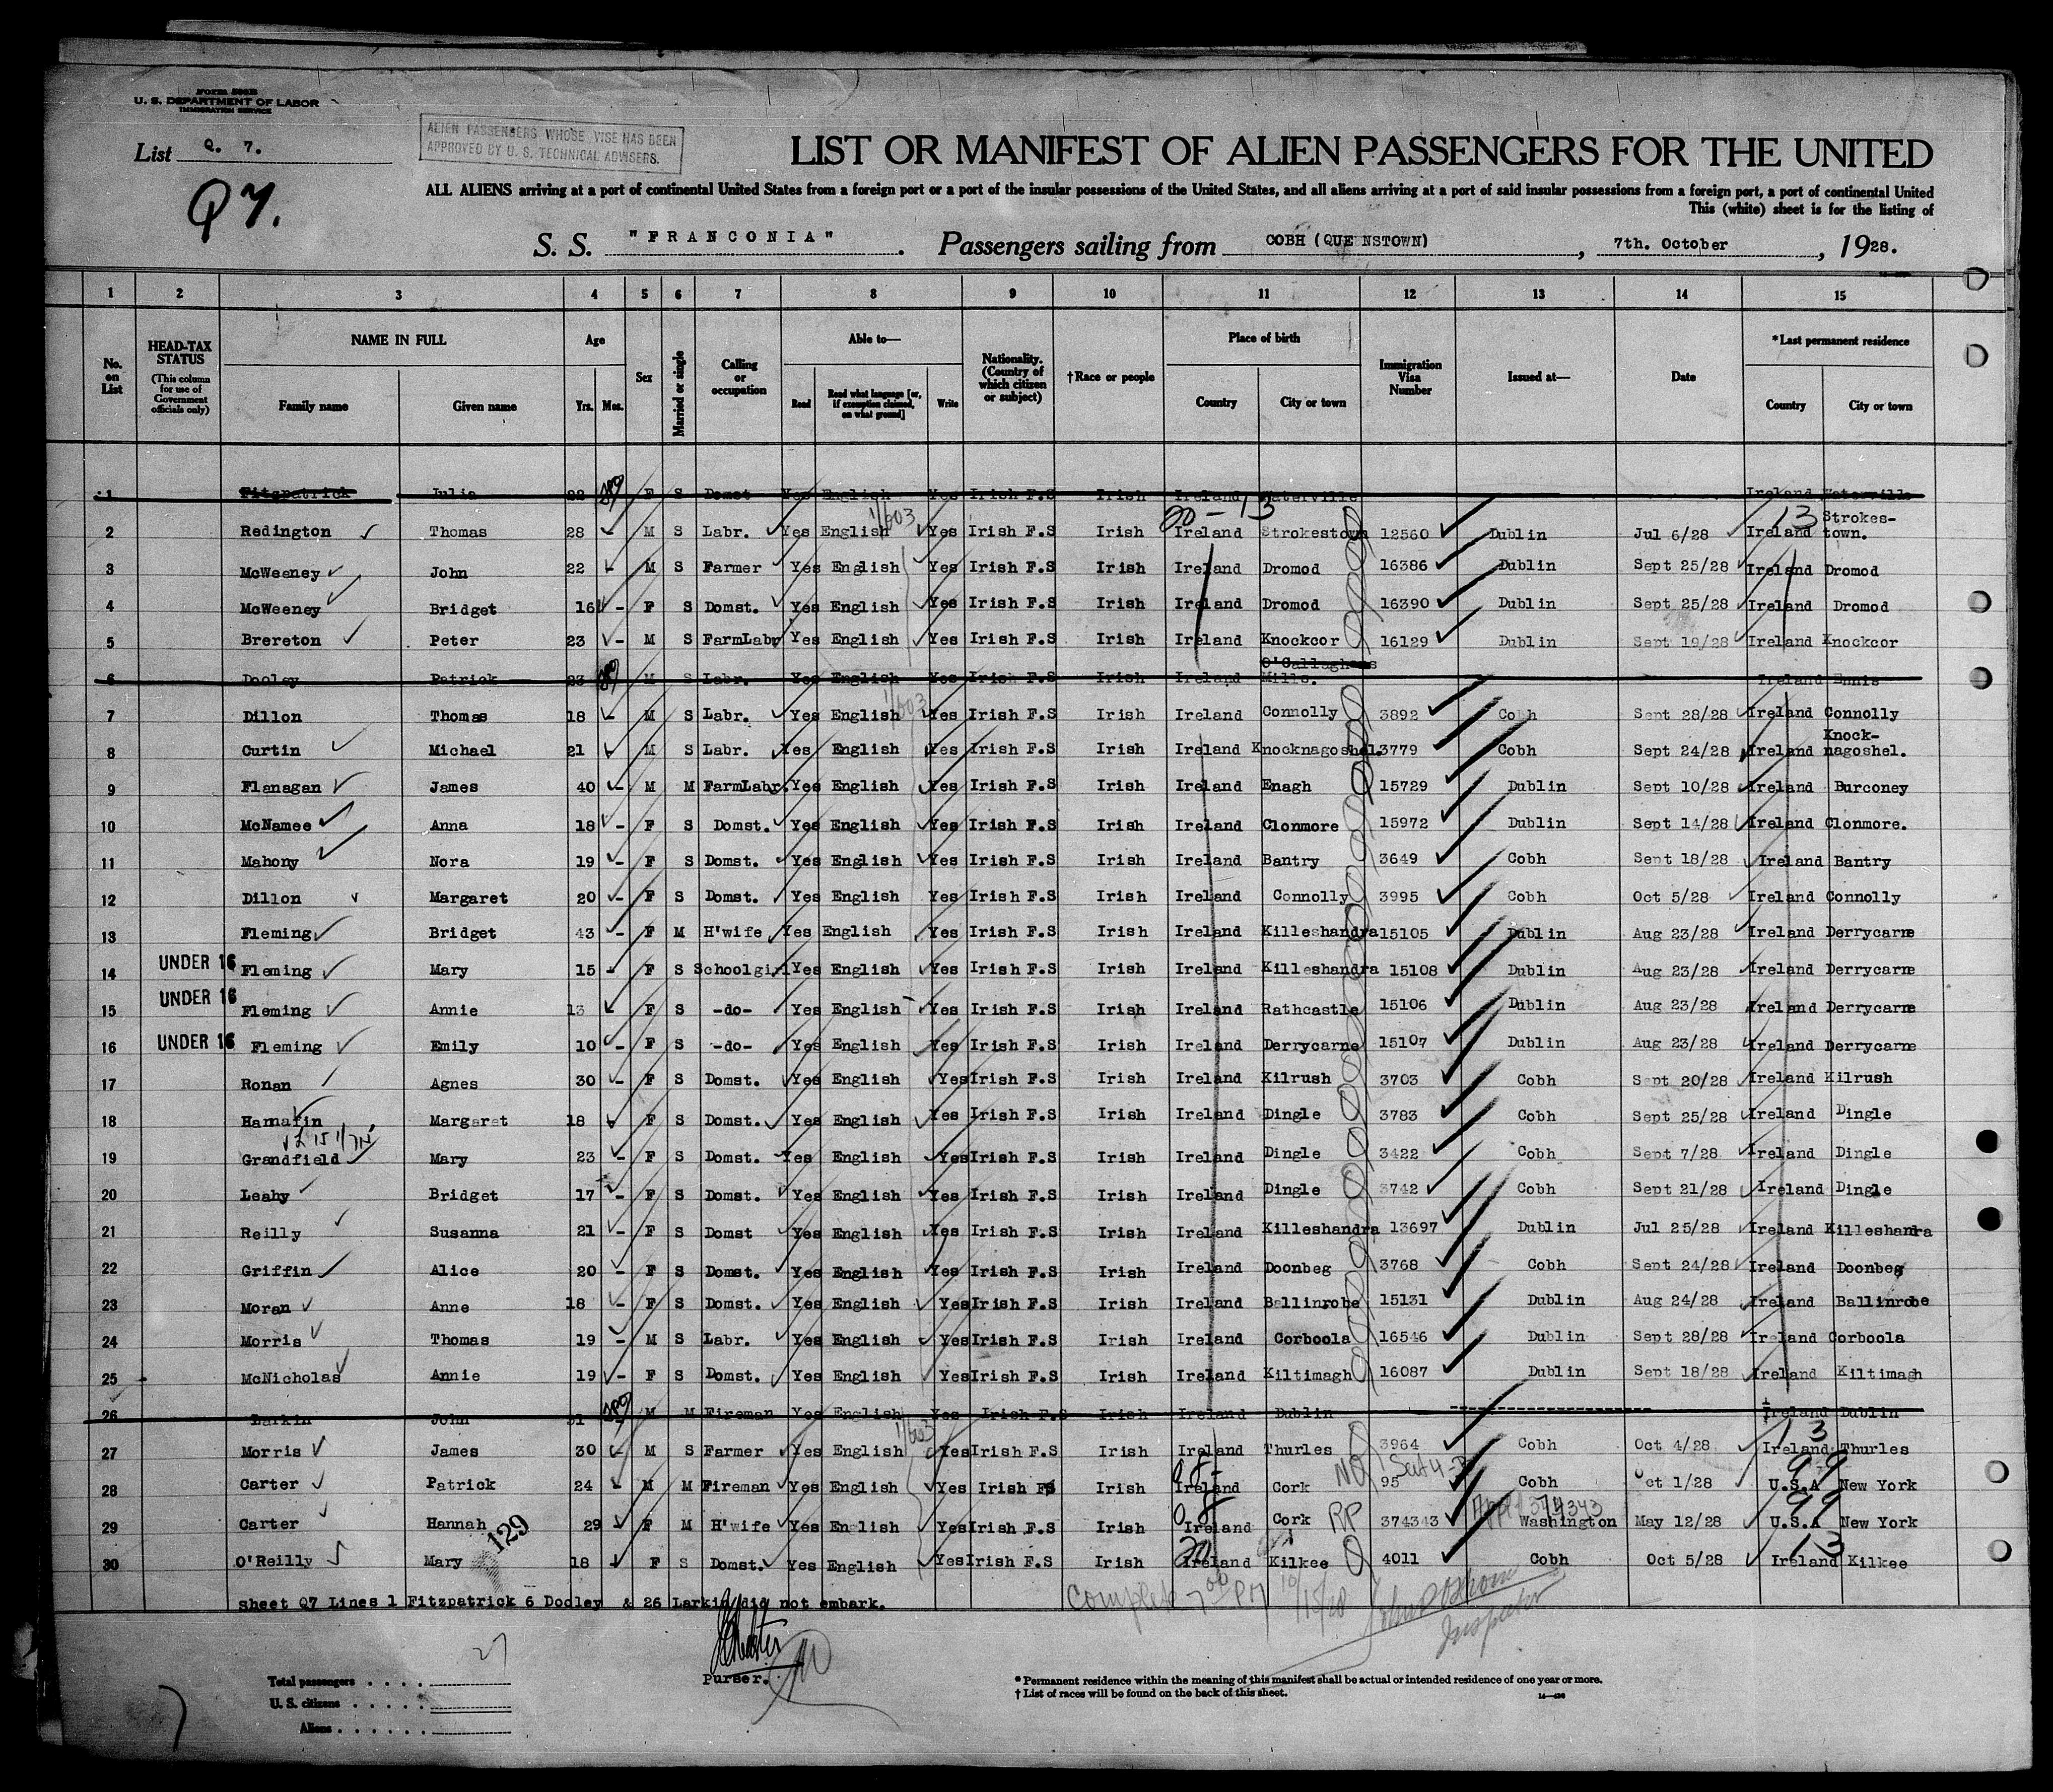 Form 500B
U. S. DEPARTMENT OF LABOR
IMMIGRATION SERVICE
List Q. 7.
Q7.
ALIEN PASSENGERS WHOSE VISE HAS BEEN
APPROVED BY U. S. TECHNICAL ADVISERS.
LIST OR MANIFEST OF ALIEN PASSENGERS FOR THE UNITED
ALL ALIENS arriving at a port of continental United States from a foreign port or a port of the insular possessions of the United States, and all aliens arriving at a port of said insular possessions from a foreign port, a port of continental United
This (white) sheet is for the listing of
S. S. "FRANCONIA". Passengers sailing from COBH (QUE NSTOWN), 7th. October, 1928.
1 2 3 4 5 6 7 8 9 10 11 12 13 14 15
No. on List
HEAD-TAX STATUS (This column for use of Government officials only)
NAME IN FULL Family name Given name
Age Yrs. Mos.
Sex
Married or single
Calling or occupation
Able to— Read Read what language [or, if exemption claimed, on what ground] Write
Nationality. (Country of which citizen or subject)
†Race or people
Place of birth Country City or town
Immigration Visa Number
Issued at—
Date
*Last permanent residence Country City or town
1 Fitzpatrick Julia 22 F S Domst Yes English Yes Irish F.S Irish Ireland Waterville Ireland Waterville
20-13 13
2 Redington Thomas 28 M S Labr. Yes English Yes Irish F.S Irish Ireland Strokestown 12560 Dublin Jul 6/28 Ireland Strokes-town.
3 McWeeney John 22 - M S Farmer Yes English Yes Irish F.S Irish Ireland Dromod 16386 Dublin Sept 25/28 Ireland Dromod
4 McWeeney Bridget 16 - F S Domst. Yes English Yes Irish F.S Irish Ireland Dromod 16390 Dublin Sept 25/28 Ireland Dromod
5 Brereton Peter 23 - M S FarmLabr Yes English Yes Irish F.S Irish Ireland Knockcor 16129 Dublin Sept 19/28 Ireland Knockcor
6 Dooley Patrick 23 M S Labr. Yes English Yes Irish F.S Irish Ireland O'Callaghans Mills. Ireland Ennis
7 Dillon Thomas 18 - M S Labr. Yes English Yes Irish F.S Irish Ireland Connolly 3892 Cobh Sept 28/28 Ireland Connolly
8 Curtin Michael 21 - M S Labr. Yes English Yes Irish F.S Irish Ireland Knocknagoshel. 3779 Cobh Sept 24/28 Ireland Knock-nagoshel.
9 Flanagan James 40 - M M FarmLabr. Yes English Yes Irish F.S Irish Ireland Enagh 15729 Dublin Sept 10/28 Ireland Burconey
10 McNamee Anna 18 - F S Domst. Yes English Yes Irish F.S Irish Ireland Clonmore 15972 Dublin Sept 14/28 Ireland Clonmore.
11 Mahony Nora 19 - F S Domst. Yes English Yes Irish F.S Irish Ireland Bantry 3649 Cobh Sept 18/28 Ireland Bantry
12 Dillon Margaret 20 - F S Domst. Yes English Yes Irish F.S Irish Ireland Connolly 3995 Cobh Oct 5/28 Ireland Connolly
13 Fleming Bridget 43 - F M H'wife Yes English Yes Irish F.S Irish Ireland Killeshandra 15105 Dublin Aug 23/28 Ireland Derrycarne
14 UNDER 16 Fleming Mary 15 - F S Schoolgirl Yes English Yes Irish F.S Irish Ireland Killeshandra 15108 Dublin Aug 23/28 Ireland Derrycarne
15 UNDER 16 Fleming Annie 13 - F S -do- Yes English Yes Irish F.S Irish Ireland Rathcastle 15106 Dublin Aug 23/28 Ireland Derrycarne
16 UNDER 16 Fleming Emily 10 - F S -do- Yes English Yes Irish F.S Irish Ireland Derrycarne 15107 Dublin Aug 23/28 Ireland Derrycarne
17 Ronan Agnes 30 - F S Domst. Yes English Yes Irish F.S Irish Ireland Kilrush 3703 Cobh Sept 20/28 Ireland Kilrush
18 Hanafin Margaret 18 - F S Domst. Yes English Yes Irish F.S Irish Ireland Dingle 3783 Cobh Sept 25/28 Ireland Dingle
19 Grandfield Mary 23 - F S Domst. Yes English Yes Irish F.S Irish Ireland Dingle 3422 Cobh Sept 7/28 Ireland Dingle
20 Leahy Bridget 17 - F S Domst. Yes English Yes Irish F.S Irish Ireland Dingle 3742 Cobh Sept 21/28 Ireland Dingle
21 Reilly Susanna 21 - F S Domst Yes English Yes Irish F.S Irish Ireland Killeshandra 13697 Dublin Jul 25/28 Ireland Killeshandra
22 Griffin Alice 20 - F S Domst. Yes English Yes Irish F.S Irish Ireland Doonbeg 3768 Cobh Sept 24/28 Ireland Doonbeg
23 Moran Anne 18 - F S Domst. Yes English Yes Irish F.S Irish Ireland Ballinrobe 15131 Dublin Aug 24/28 Ireland Ballinrobe
24 Morris Thomas 19 - M S Labr. Yes English Yes Irish F.S Irish Ireland Corboola 16546 Dublin Sept 28/28 Ireland Corboola
25 McNicholas Annie 19 - F S Domst. Yes English Yes Irish F.S Irish Ireland Kiltimagh 16087 Dublin Sept 18/28 Ireland Kiltimagh
26 Larkin John 31 M M Fireman Yes English Yes Irish F.S Irish Ireland Dublin Ireland Dublin
27 Morris James 30 - M S Farmer Yes English Yes Irish F.S Irish Ireland Thurles 3964 Cobh Oct 4/28 13 Ireland Thurles
28 Carter Patrick 24 - M M Fireman Yes English Yes Irish FS Irish Ireland Cork NQ 95 Cobh Oct 1/28 99 U.S.A New York
29 Carter Hannah 29 - F M H'wife Yes English Yes Irish F.S Irish Ireland Cork RP 374343 Washington May 12/28 99 U.S.A New York
129
30 O'Reilly Mary 18 F S Domst. Yes English Yes Irish F.S Irish 20 Ireland Kilkee 4011 Cobh Oct 5/28 13 Ireland Kilkee
sheet Q7 Lines 1 Fitzpatrick 6 Dooley & 26 Larkin did not embark.
Complete 7 00 PM 10/15/28
Inspector
27
Total passengers
U. S. citizens
Aliens
Purser.
* Permanent residence within the meaning of this manifest shall be actual or intended residence of one year or more.
† List of races will be found on the back of this sheet.